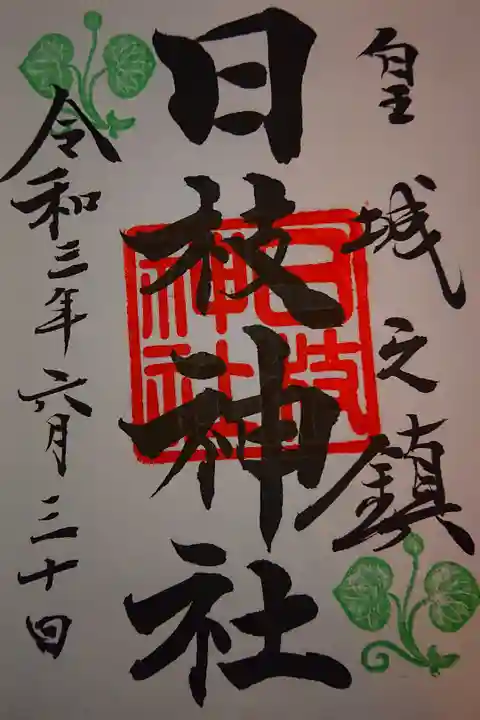 皇城之鎮
日枝神社
日枝神社
令和三年六月三十日